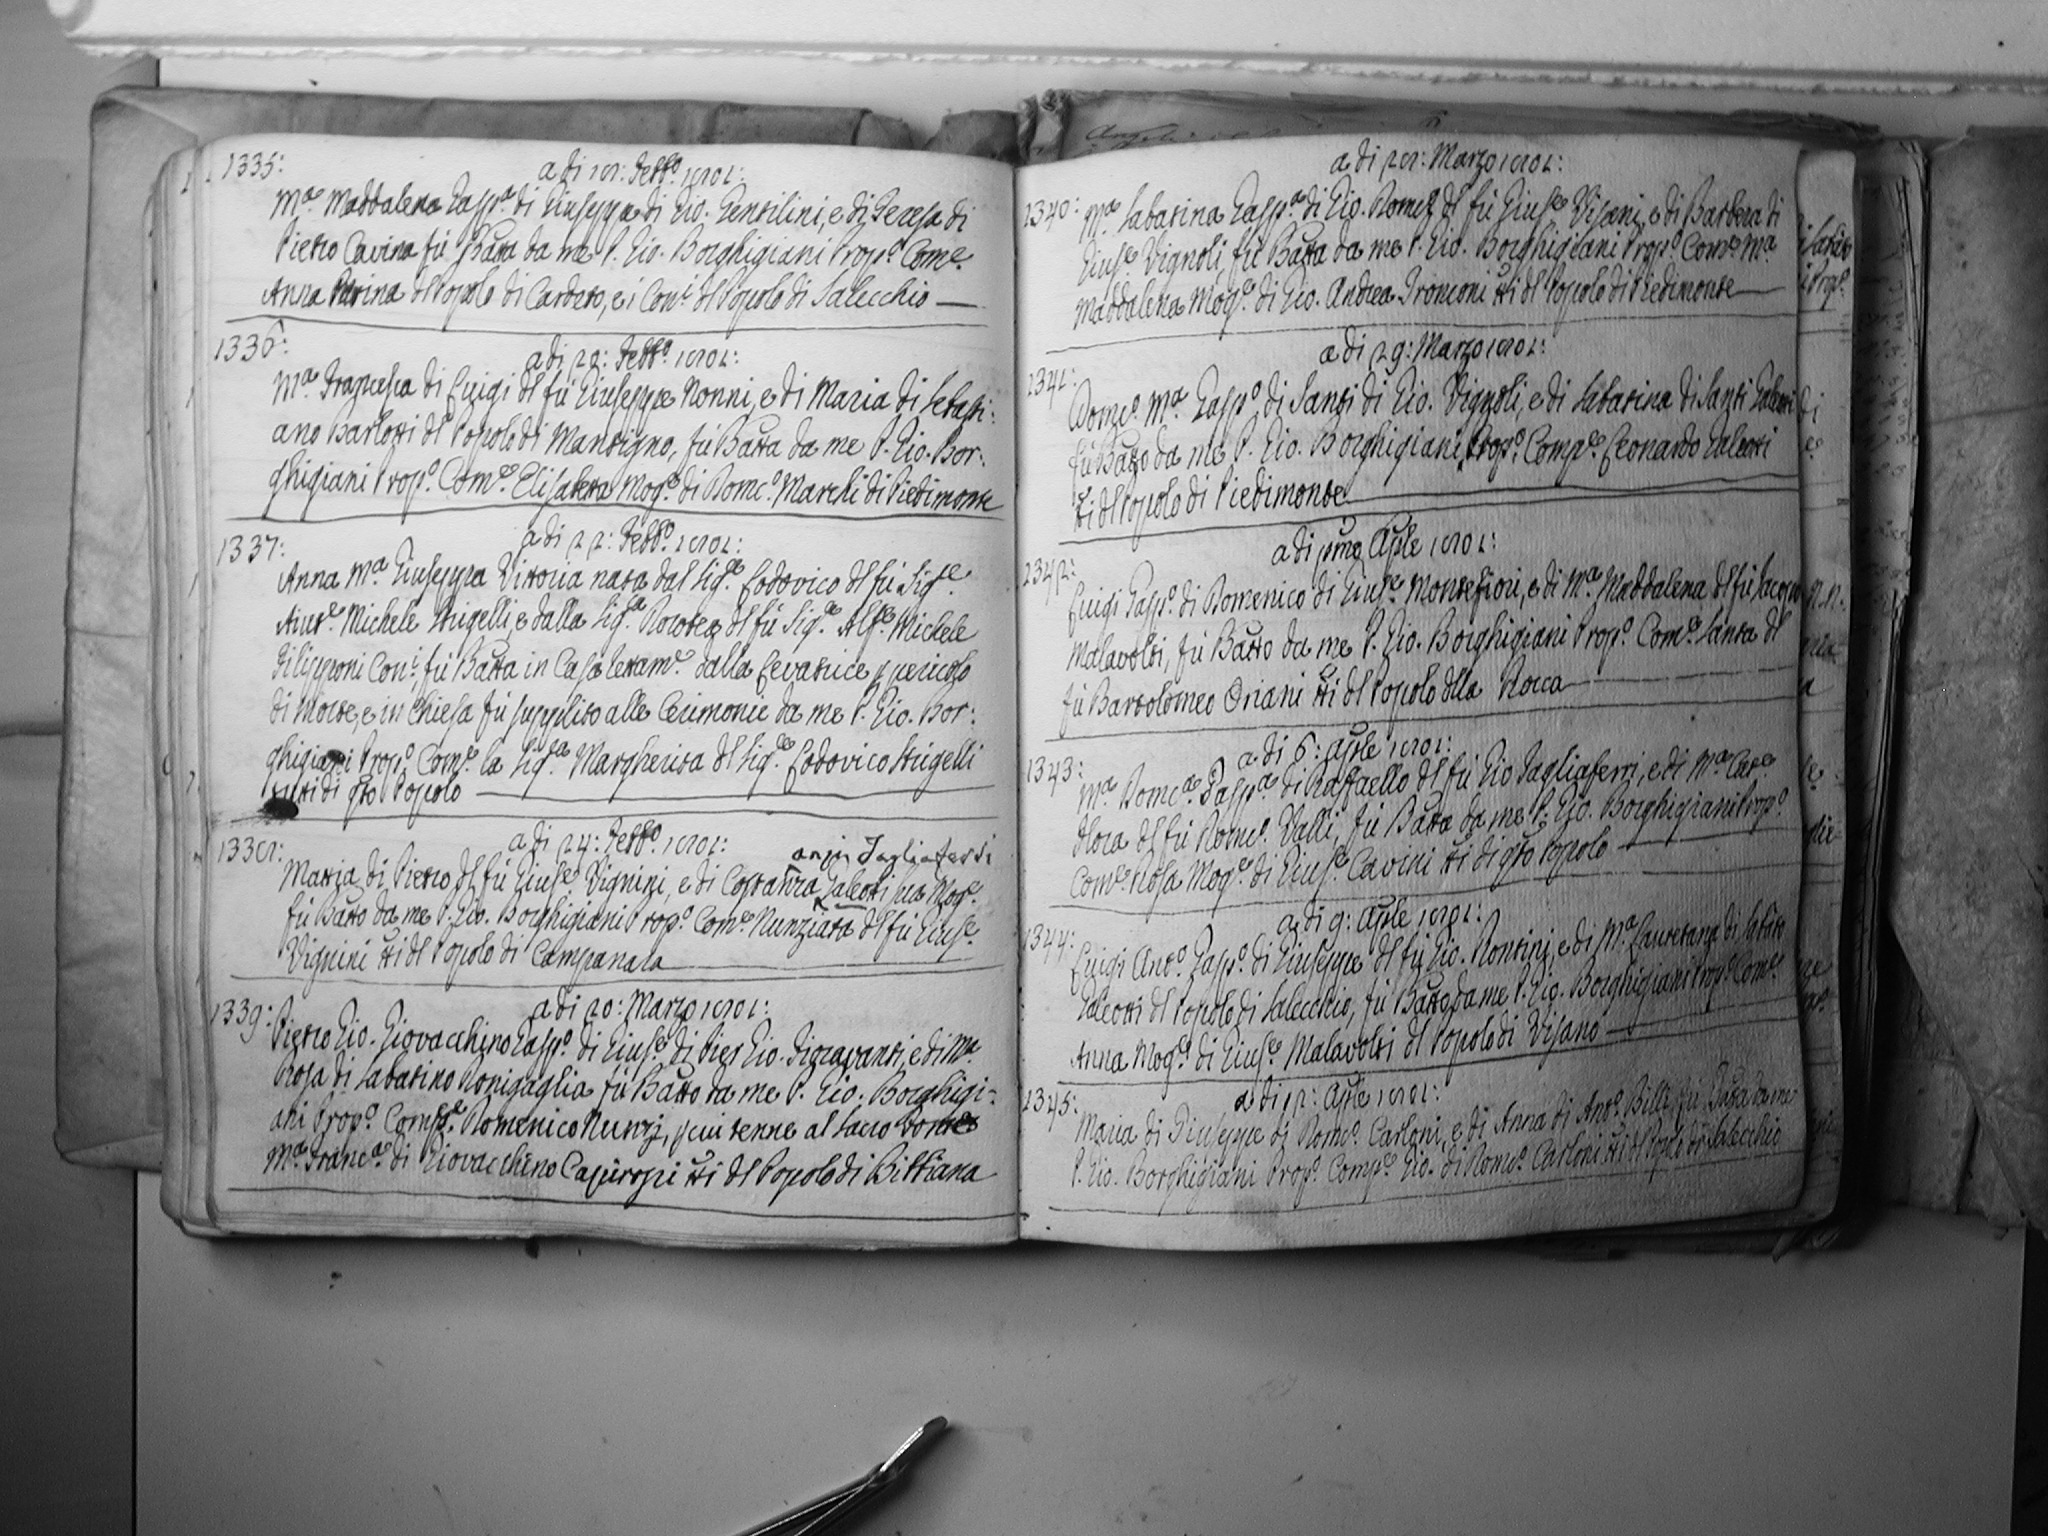 1335:
a di 18: Febb.º 1801:
M.ª Maddalena Gasp.ª di Giuseppe di Gio. Gentilini, e di Teresa di
Pietro Cavina fù Batta da me P. Gio. Borghigiani Prop.º Com.e
Anna Cavina dl Popolo di Cardeto, e i Con.i dl Popolo di Salecchio
1336:
a di 22: Febb.º 1801:
M.ª Francesca di Luigi dl fù Giuseppe Nonni, e di Maria di Sebasti:
ano Barlotti dl Popolo di Mantigno, fù Batta da me P. Gio. Bor:
ghigiani Prop.º Com.e Elisabetta Mog.e di Domc.º Marchi di Piedimonte
1337:
a di 22: Febb.º 1801:
Anna M.ª Giuseppa Vittoria nata dal Sig.e Lodovico dl fù Sig.e
Aiut.e Michele Strigelli, e dalla Sig.ª Dorotea dl fù Sig.e Alf.e Michele
Filipponi Con.i, fù Batta in Casa lettam.e dalla Levatrice p pericolo
di Morte, e in Chiesa fù supplito alle Cerimonie da me P. Gio. Bor:
ghigiani Prop.º Com.e la Sig.ª Margherita dl Sig.e Lodovico Strigelli
tutti di qto Popolo
1338:
a di 24: Febb.º 1801:
anzi Tagliaferri
Mattia di Pietro dl fù Gius.e Vignini, e di Costanza Galeotti sua Mog.e
fù Batto da me P. Gio. Borghigiani Prop.º Com.e Nunziata dl fù Gius.e
Vignini tti dl Popolo di Campanara
1339:
a di 20: Marzo 1801:
Pietro Gio. Giovacchino Gasp.º di Gius.e di Pier Gio. Figravanti, e di M.ª
Rosa di Sabatino Ronigaglia fù Batto da me P. Gio. Borghigi-
ani Prop.º Comp.e Domenico Nunzj, p cui tenne al Sacro
M.ª Franc.ª di Giovacchino Capirossi tti dl Popolo di Bibbiana
a di 28: Marzo 1801:
1340: M.ª Sabatina Gasp.ª di Gio. Domc.º dl fù Gius.e Visani, e di Barbera di
Gius.e Vignoli, fù Batta da me P. Gio. Borghigiani Prop.º Com.e M.ª
Maddalena Mog.e di Gio. Andrea Tronconi tti dl Popolo di Piedimonte
a di 29: Marzo 1801:
1341:
Domc.º M.ª Gasp.º di Santi di Gio. Vignoli, e di Sabatina di Santi Galeotti
fù Batto da me P. Gio. Borghigiani Prop.º Comp.e Leonardo Galeotti
tti dl Popolo di Piedimonte
a di pmo Aple 1801:
1342:
Luigi Gasp.º di Domenico di Gius.e Montefiori, e di M.ª Maddalena dl fù Jacopo
Malavolti, fù Batto da me P. Gio. Borghigiani Prop.º Com.e Santa dl
fù Bartolomeo Oriani tti dl Popolo dlla Rocca
a di 6: Aple 1801:
1343:
M.ª Domc.ª Gasp.ª di Raffaello dl fù Gio Tagliaferri, e di M.ª Cat.e
Flora dl fù Domc.º Valli, fù Batta da me P. Gio. Borghigiani Prop.º
Com.e Rosa Mog.e di Gius.e Cavini tti di qto Popolo
a di 9: Aple 1801:
1344:
Luigi Ant.º Gasp.º di Giuseppe dl fù Gio. Rontini, e di M.ª Lauretana di Sabato
Galeotti dl Popolo di Salecchio, fù Batto da me P. Gio. Borghigiani Prop.º Com.e
Anna Mog.e di Gius.e Malavolti dl Popolo di Visano
a di 12: Aple 1801:
1345:
Maria di Giuseppe di Domc.º Carloni, e di Anna di Ant.º Billi fù Batta da me
P. Gio. Borghigiani Prop.º Comp.e Gio. di Domc.º Carloni tti dl Popolo di Salecchio